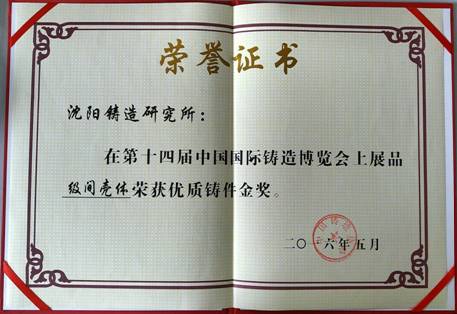 荣誉证书
沈阳铸造研究所：
在第十四届中国国际铸造博览会上展品
级间壳体荣获优质铸件金奖。
二〇一六年五月